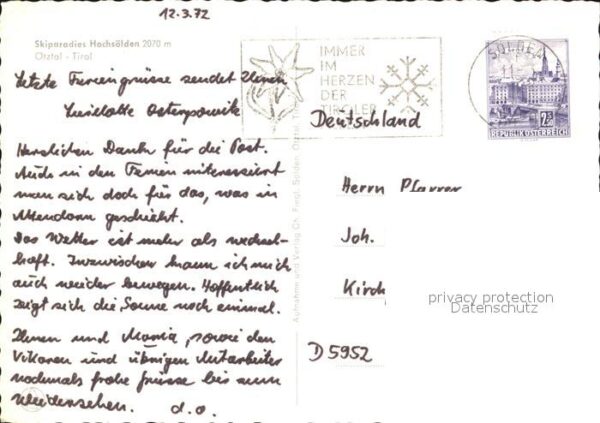 12.3.72
Skiparadies Hochsölden 2070 m
Ötztal - Tirol
Letzte Feriengrüsse sendet Ihnen
Liselotte
Herzlichen Dank für die Post.
Auch in den Ferien interessiert
man sich doch für das, was in
Attendorn geschieht.
Das Wetter ist mehr als wechsel-
haft. Inzwischen kann ich mich
auch wieder bewegen. Hoffentlich
zeigt sich die Sonne noch einmal.
Ihnen und Maria, sowie den
Vikaren und übrigen Mitarbeiter
nochmals frohe Grüsse bis zum
Wiedersehen. d.o.
Aufnahme und Verlag Ch. Fiegl, Sölden, Ötztal, Tirol
IMMER
IM
HERZEN
DER
TIROLER
SÖLDEN
REPUBLIK ÖSTERREICH
Deutschland
Herrn Pfarrer
Joh.
Kirch
D 5952
privacy protection
Datenschutz